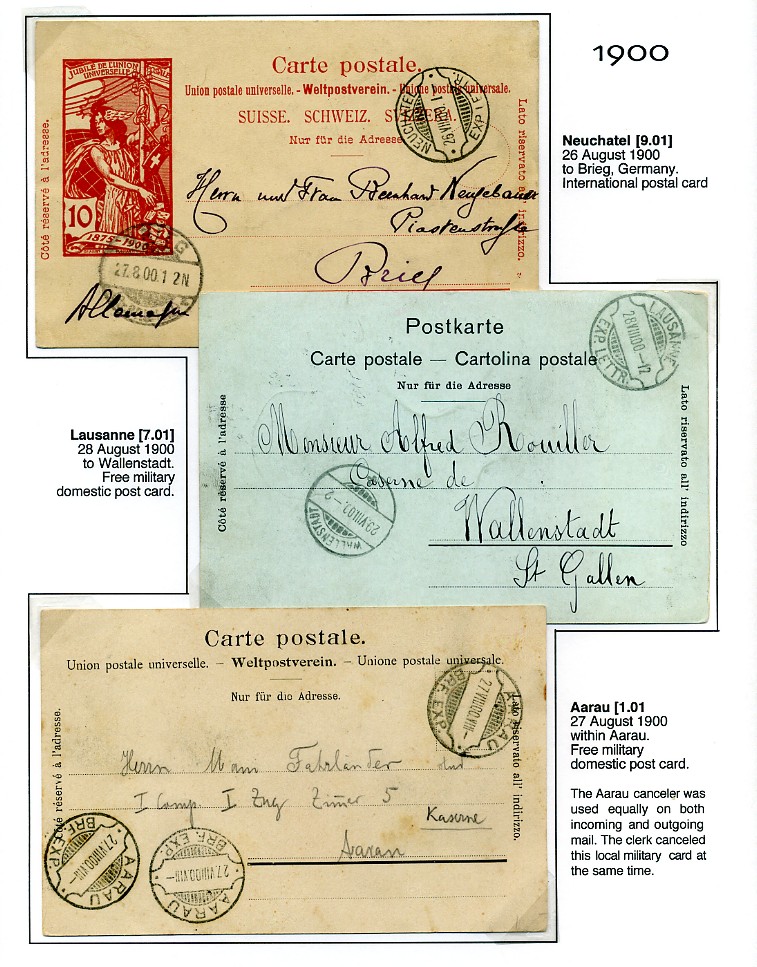 1900
JUBILÉ DE L'UNION
UNIVERSELLE
10
1875-1900
Côté réservé à l'adresse.
Carte postale.
Union postale universelle. - Weltpostverein. - Unione postale universale.
SUISSE. SCHWEIZ. SVIZZERA.
Nur für die Adresse.
Lato riservato all' indirizzo.
NEUCHATEL
26 VIII 00
EXP. LETTR.
Herrn und Frau Bernhard Neugebauer
Piastenstraße
Brieg
Allemagne
27.8.00.1 2N
Neuchatel [9.01]
26 August 1900
to Brieg, Germany.
International postal card
Postkarte
Carte postale — Cartolina postale
Nur für die Adresse
Côté réservé à l'adresse
Lato riservato all' indirizzo
LAUSANNE
28 VIII 00 - 12
EXP. LETTR.
Monsieur Alfred Rouiller
Caserne de
Wallenstadt
St Gallen
WALLENSTADT
Lausanne [7.01]
28 August 1900
to Wallenstadt.
Free military
domestic post card.
Carte postale.
Union postale universelle. - Weltpostverein. - Unione postale universale.
Nur für die Adresse.
Côté réservé à l'adresse.
Lato riservato all' indirizzo.
AARAU
27 VIII 00 VIII -
BRF. EXP.
Herrn Fahrländer
I Comp. I Zug Zimer 5
Kaserne
Aarau
AARAU
27 VIII 00 VIII -
BRF. EXP.
AARAU
27 VIII 00 VIII -
BRF. EXP.
Aarau [1.01
27 August 1900
within Aarau.
Free military
domestic post card.
The Aarau canceler was
used equally on both
incoming and outgoing
mail. The clerk canceled
this local military card at
the same time.